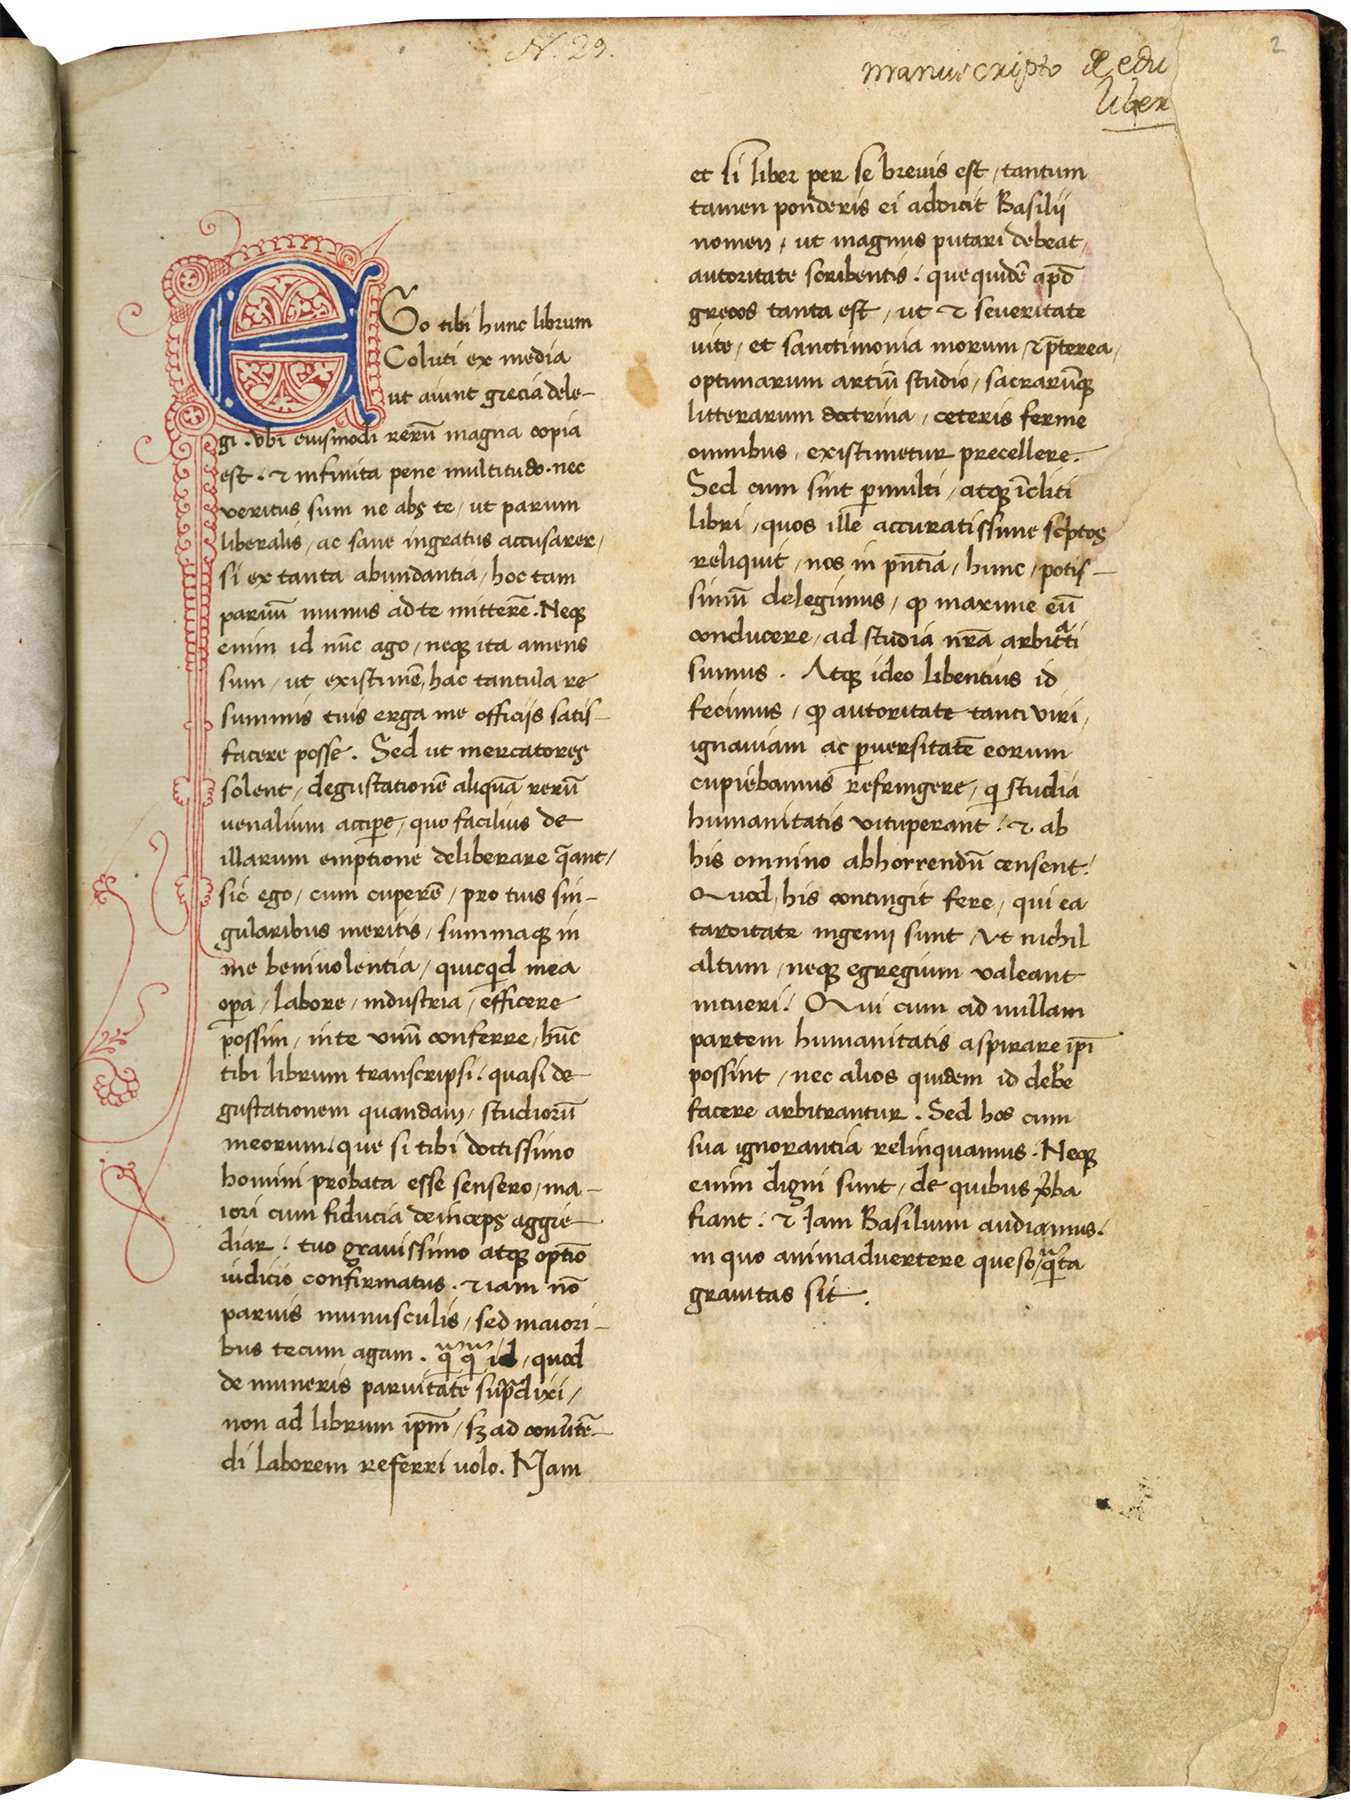 N. 29.
manuscripto de edu
liber
2
EGo tibi hunc librum
Coluti ex media
ut aiunt grecia dele-
gi . Vbi eiusmodi rerū magna copia
est . ⁊ infinita pene multitudo . nec
veritus sum ne abs te / ut parum
liberalis / ac sane ingratus accusarer /
si ex tanta abundantia / hoc tam
paruū munus ad te mitterē . Neqꝫ
enim id nūc ago / neqꝫ ita amens
sum / ut existimē / hac tantula re
summis tuis erga me officijs satis-
facere posse . Sed ut mercatores
solent / degustationē aliquā rerū
uenalium accipe̅ / quo facilius de
illarum emptione deliberare q̄ant /
sic ego / cum cuperē / pro tuis sin-
gularibus meritis / summaqꝫ in
me beniuolentia / quicqͥd mea
oꝑa / labore / industria / efficere
possim / in te vnū conferre / hūc
tibi librum transcripsi / quasi de
gustationem quandam / studiorū
meorum / que si tibi doctissimo
homini probata esse sensero / ma-
iori cum fiducia deinceps aggre-
diar : tuo grauissimo atqꝫ optīo
iudicio confirmatus . ⁊ iam nō
paruis munusculis / sed maiori-
bus tecum agam . qͣqͣ id / quod
de muneris paruitate supͣdixi /
non ad librum ip̄m / sꝫ ad conūtē-
di laborem referri uolo . Nam
et si liber per se breuis est / tantum
tamen ponderis ei addicit Basilij
nomen / ut magnus putari debeat /
autoritate scribentis : que quidē apd̄
grecos tanta est / ut ⁊ seueritate
uite / et sanctimonia morum / ⁊ p̄terea /
optimarum artiū studio / sacrarūqꝫ
litterarum doctrina / ceteris ferme
omnibus / existimetur precellere .
Sed cum sint ꝑmulti / atqꝫ īcliti
libri / quos ille accuratissime sc̓ptos
reliquit / nos in pn̄tia / hunc / potis-
simū delegimus / ꝙ maxime eū
conducere / ad studia nr̄a arbitͣti
sumus . Atqꝫ ideo libentius id
fecimus / ꝙ autoritate tanti viri /
ignauiam ac ꝑuersitatē eorum
cupiebamus refringere / qͥ studia
humanitatis vituperant : ⁊ ab
his omnino abhorrendū censent :
Quod / his contingit fere / qui ea
tarditate ingenij sunt / vt nichil
altum / neqꝫ egregium valeant
intueri : Qui cum ad nullam
partem humanitatis aspirare ip̄i
possint / nec alios quidem id deb̓e
facere arbitrantur . Sed hos cum
sua ignorantia relinquamus . Neqꝫ
enim digni sunt / de quibus v̓ba
fiant : ⁊ Jam Basilium audiamus :
in quo animaduertere queso / qͣ̄ta
grauitas sit .